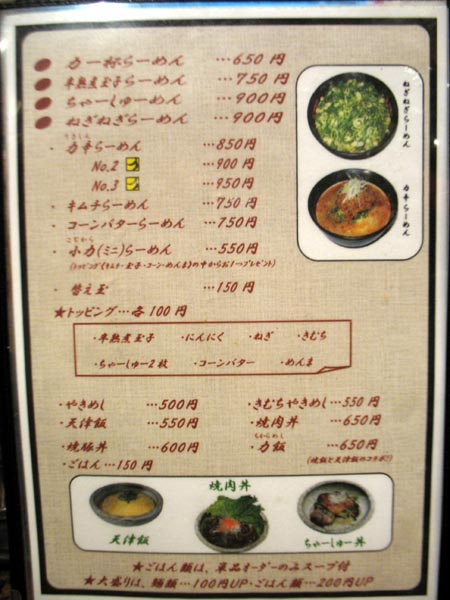 力一杯らーめん …650円
半熟煮玉子らーめん …750円
ちゃーしゅーめん …900円
ねぎねぎらーめん …900円
りきしん
・力辛らーめん …850円
No.2 …900円
No.3 …950円
・キムチらーめん …750円
・コーンバターらーめん …750円
こぢから
・小力(ミニ)らーめん …550円
(トッピング(キムチ・玉子・コーン・めんま)の中からお1つプレゼント)
・替え玉 …150円
★トッピング…各100円
・半熟煮玉子 ・にんにく ・ねぎ ・きむち
・ちゃーしゅー2枚 ・コーンバター ・めんま
ねぎねぎらーめん
力辛らーめん
・やきめし …500円
・天津飯 …550円
・焼豚丼 …600円
・ごはん …150円
・きむちやきめし …550円
・焼肉丼 …650円
ちからめし
・力飯 …650円
(焼飯と天津飯のコラボ!!)
天津飯
焼肉丼
ちゃーしゅー丼
★ごはん類は、単品オーダーのみスープ付
★大盛りは、麺類…100円UP・ごはん類…200円UP